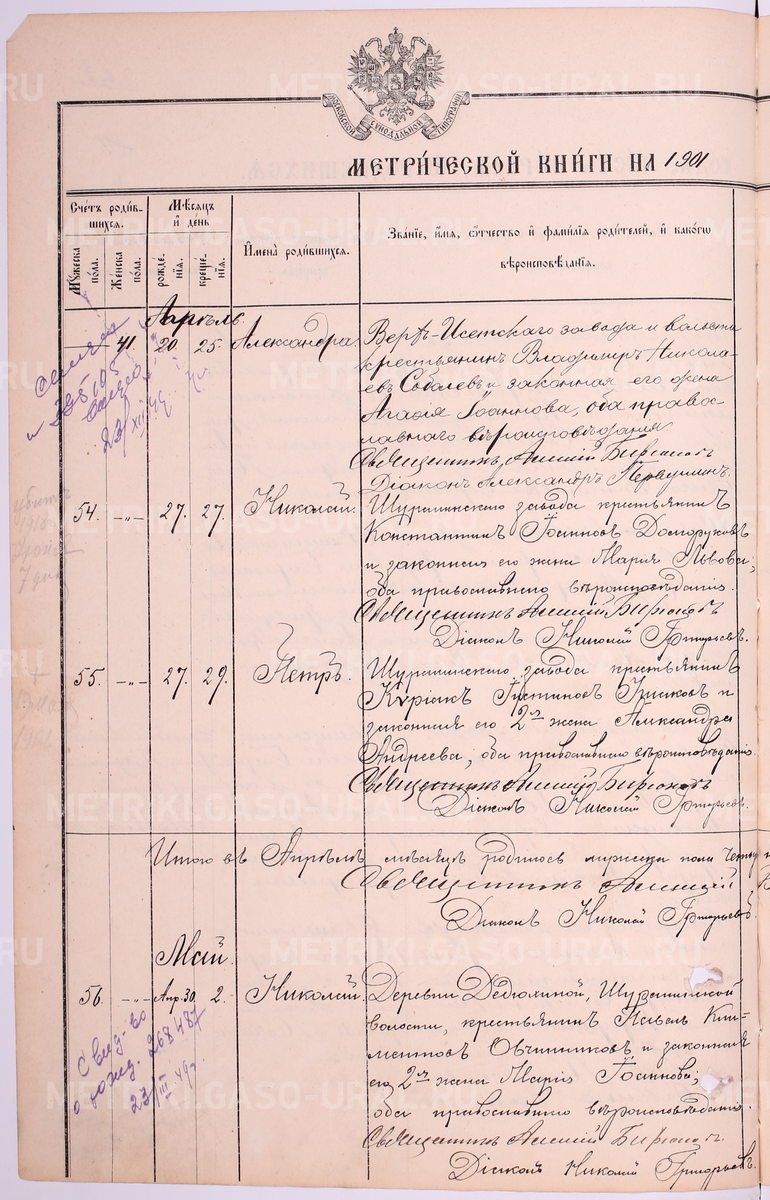 МОСКОВСКОЙ СѴНОДАЛЬНОЙ ТИПОГРАФІИ
МЕТРИ́ЧЕСКОЙ КНИ́ГИ НА 1901
Сче́тъ роди́в-
шихся.
Мѣ́сяцъ
и҆ де́нь
Мꙋ́жеска по́ла.
Же́нска по́ла.
рожде́-
нія.
креще́-
нія.
И҆мена̀ роди́вшихся.
Зва́ніе, и҆́мя, ѻ҆́тчество и҆ фами́лія роди́телей, и҆ како́гѡ
вѣроисповѣ́данія.
Апрѣль
41. 20. 25. Александра. Верхъ-Исетскаго завода и волости
крестьянинъ Владиміръ Никола-
евъ Соболевъ и законная его жена
Агафія Іоаннова, оба правос-
лавнаго вѣроисповѣданія
Священникъ Алексій
Діаконъ Александръ
54. -„- 27. 27. Николай. Шуралинскаго завода крестьянинъ
Константинъ Іоанновъ Долгоруковъ
и законная его жена Марія Львова;
оба православнаго вѣроисповѣданія.
Священникъ Алексій
Діаконъ Николай Григорьевъ.
55. -„- 27. 29. Петръ. Шуралинскаго завода крестьянинъ
Киріакъ Іустиновъ и
законная его 2ая жена Александра
Андреева; оба православнаго вѣроисповѣданія.
Священникъ Алексій
Діаконъ Николай Григорьевъ.
Итого въ Апрѣлѣ мѣсяцѣ родилось мужеска пола
Священникъ Алексій
Діаконъ Николай Григорьевъ
Май.
56. -„- Апр. 30. 2. Николай. Деревни Дедюхиной, Шуралинской
волости, крестьянинъ Павелъ Кли-
ментовъ Овчинниковъ и законная
его 2ая жена Марія Іоаннова;
оба православнаго вѣроисповѣданія.
Священникъ Алексій
Діаконъ Николай Григорьевъ.
Свид-во
о рожд. 268487
23/III 49г.
METRIKI.GASO-URAL.RU